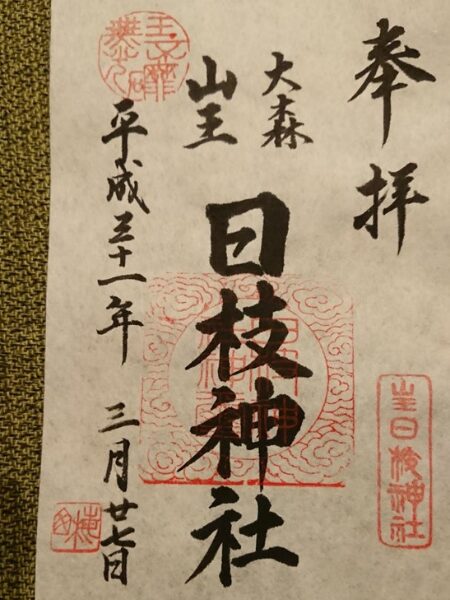 奉拝
大森
山王
日枝神社
平成三十一年 三月廿七日
山王日枝神社